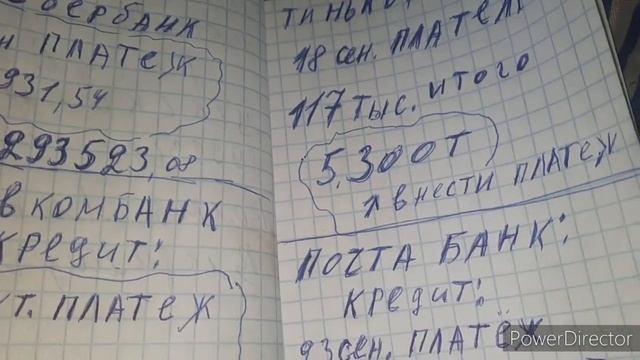 СБЕРБАНК
ПЛАТЕЖ
931,54
293523,08
ВКОМБАНК
КРЕДИТ:
ПЛАТЕЖ
ТИНЬ
18 сен. ПЛАТЕЖ
117 тыс. итого
5.300 Т
внести ПЛАТЕЖ
ПОЧТА БАНК:
КРЕДИТ:
сен. ПЛАТЁЖ
PowerDirector